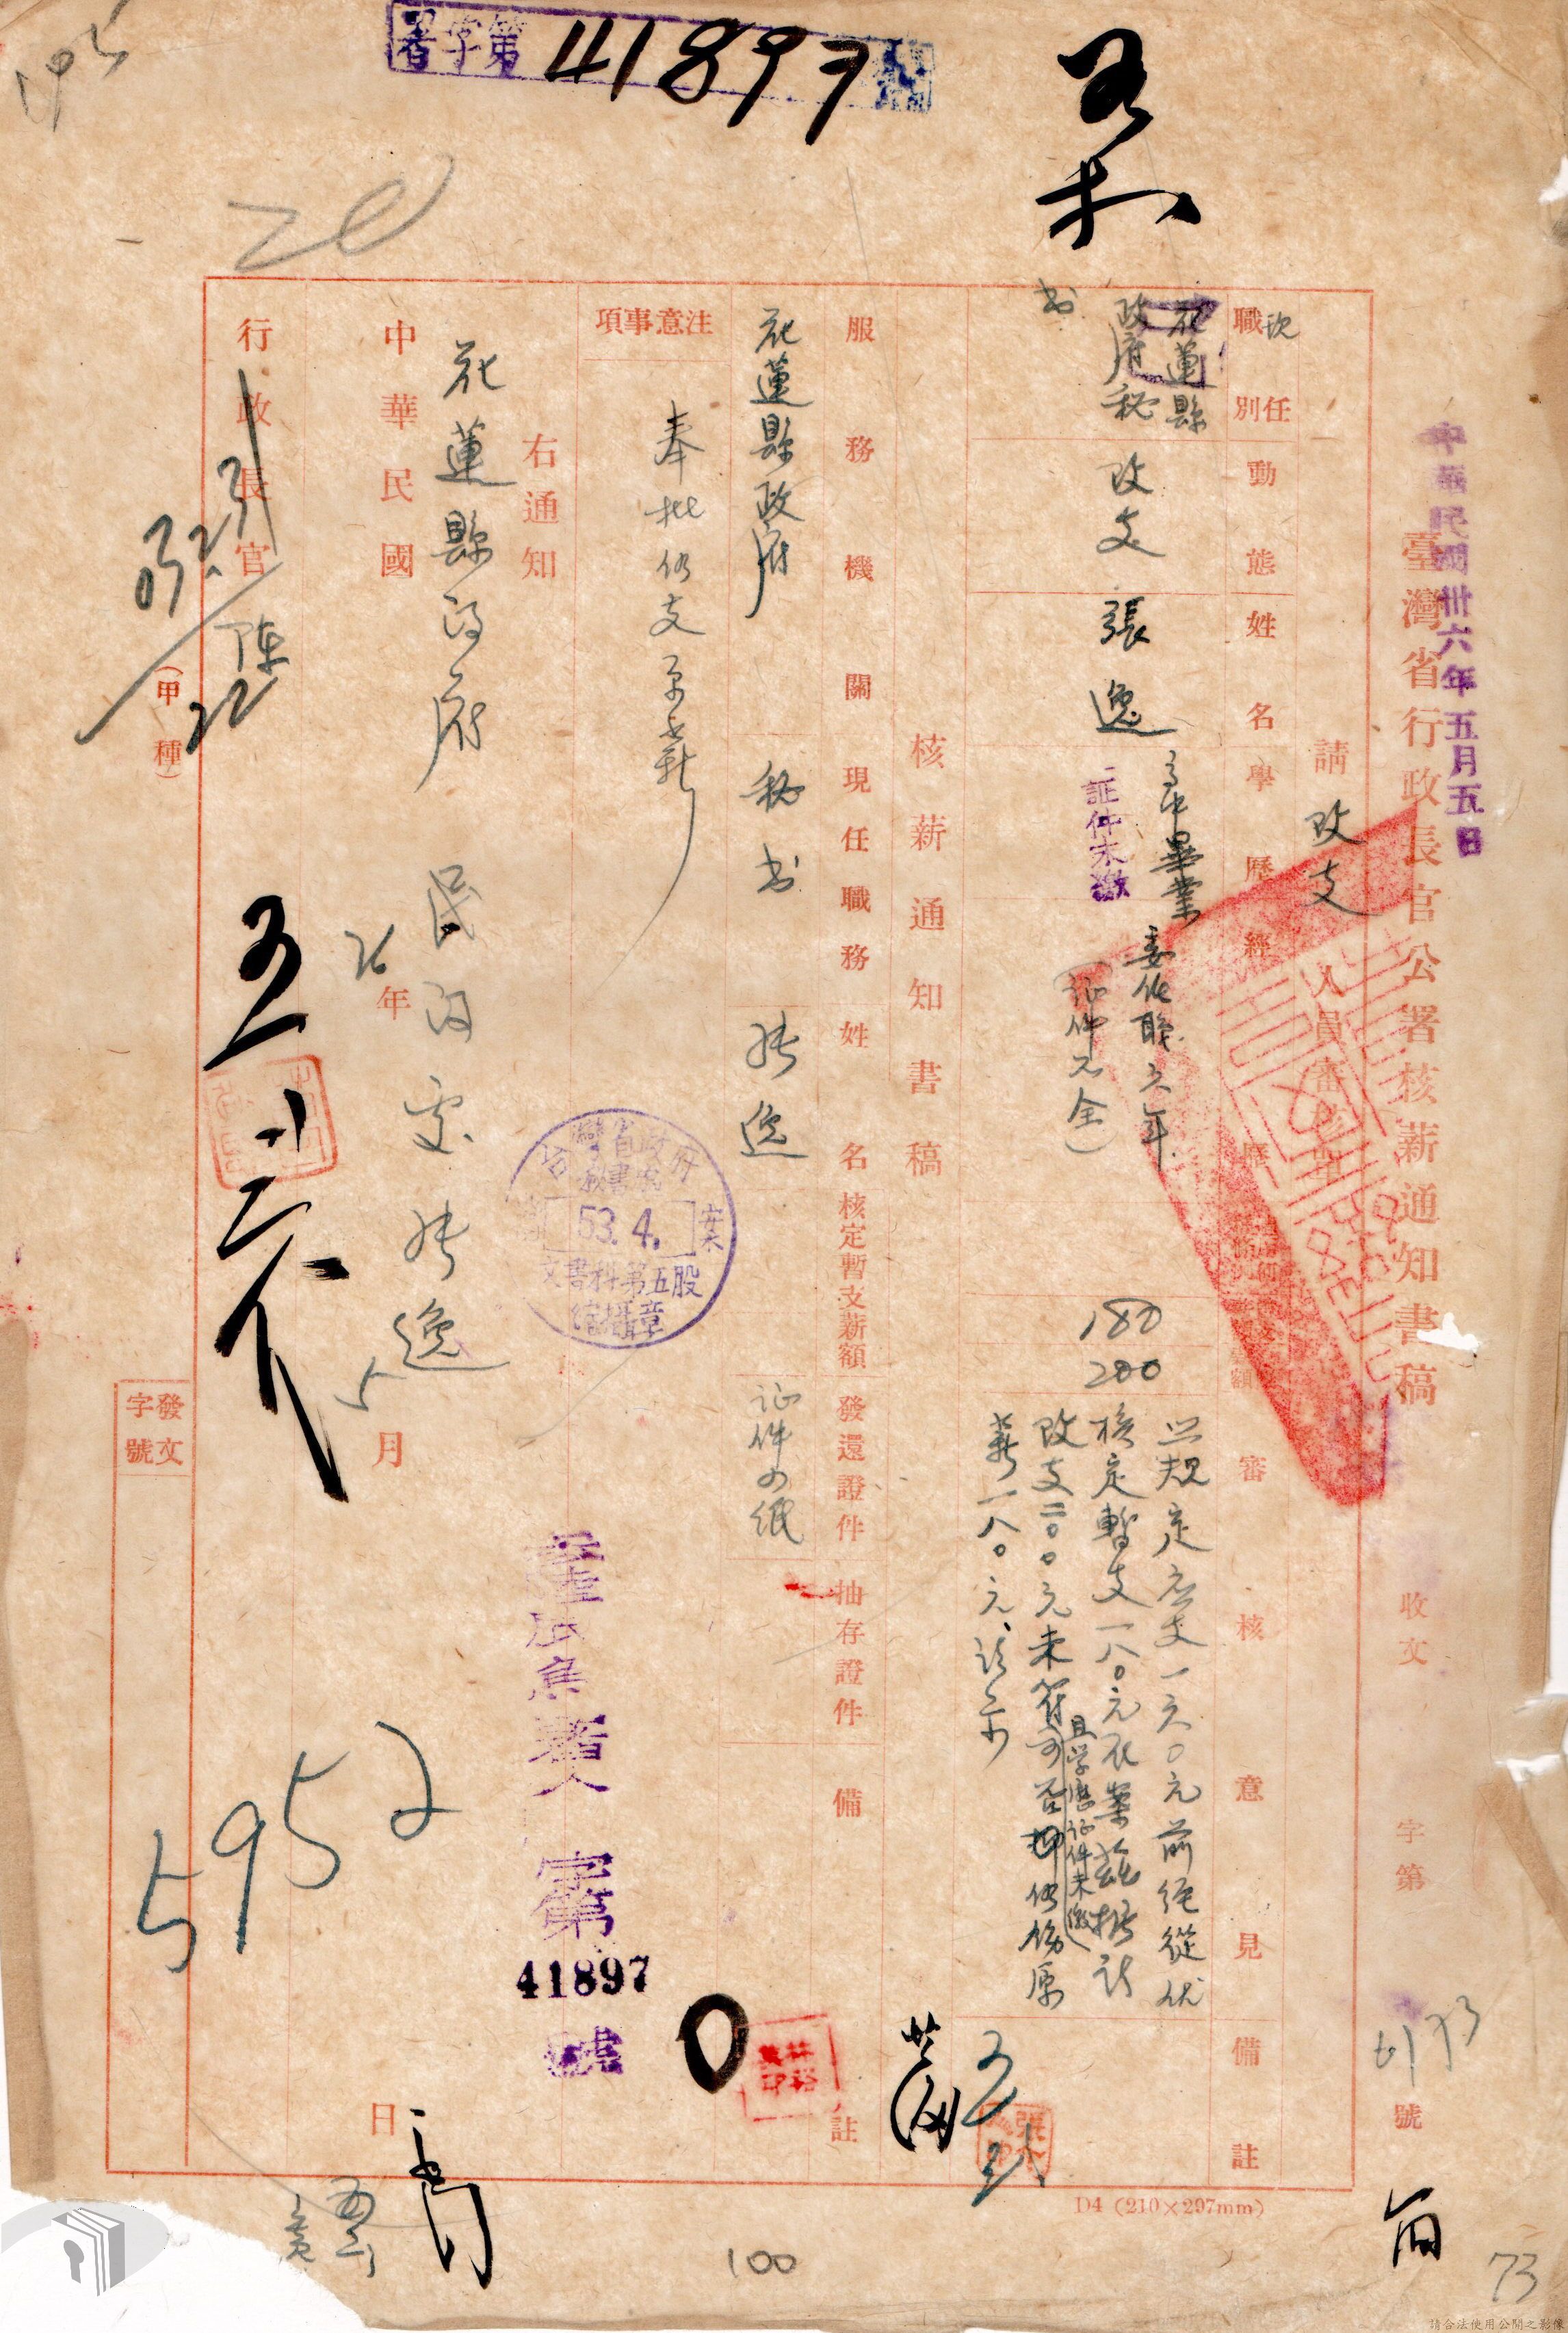 署字第41897
中華民國卅六年五月五日
臺灣省行政長官公署核薪通知書稿
收文 字第 號
請改支人員審核單
現職別
任動態
姓名
學歷
經歷
審核意見
備註
花蓮縣
政府秘
书
改支
張逸
高中畢業
證件未繳
委任職六年
(证件不全)
180
200
照規定應支一六〇元前經從优
核定暫支一八〇元在案茲据請
改支二〇〇元未符可否仍飭原
且学歷证件未繳
薪一八〇元、請示
核薪通知書稿
服務機關
現任職務
姓名
核定暫支薪額
發還證件
抽存證件
備註
花蓮縣政府
秘书
張逸
证件四纸
注意事項
奉批仍支原薪
右通知
花蓮縣政府 民政處 張逸
中華民國36年5月日
行政長官陳
(甲種)
發文字號
台灣省政府
秘書處
53.4.
檔案
文書科第五股
縮攝章
字第
41897
號
5952
D4 (210×297mm)
100
73
請合法使用公開之影像